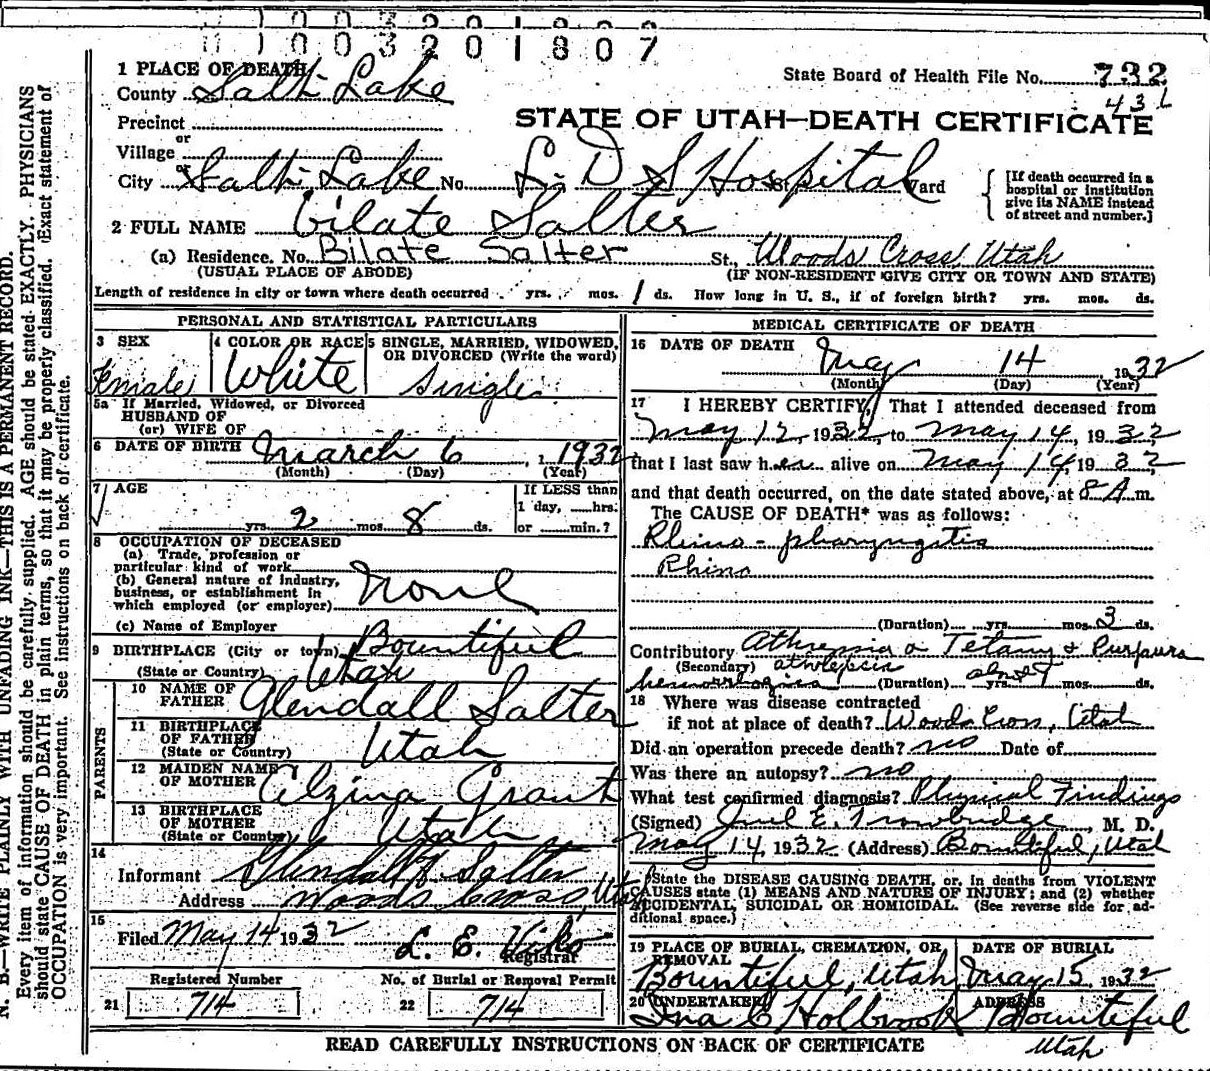 1003201807
1 PLACE OF DEATH
County Salt Lake
State Board of Health File No. 732
431
Precinct
or
Village
STATE OF UTAH—DEATH CERTIFICATE
or
City Salt Lake No. L. D S Hospital St. Ward
[If death occurred in a hospital or institution give its NAME instead of street and number.]
2 FULL NAME Bilate Salter
(a) Residence. No. Bilate Salter St., Woods Cross Utah
(USUAL PLACE OF ABODE) (IF NON-RESIDENT GIVE CITY OR TOWN AND STATE)
Length of residence in city or town where death occurred yrs. mos. 1 ds. How long in U. S., if of foreign birth? yrs. mos. ds.
PERSONAL AND STATISTICAL PARTICULARS
3 SEX 4 COLOR OR RACE 5 SINGLE, MARRIED, WIDOWED, OR DIVORCED (Write the word)
Female White Single
5a If Married, Widowed, or Divorced
HUSBAND OF
(or) WIFE OF
6 DATE OF BIRTH March 6, 1932
(Month) (Day) (Year)
7 AGE
If LESS than
1 day, hrs.
yrs. 2 mos. 8 ds. or min.?
8 OCCUPATION OF DECEASED
(a) Trade, profession or
particular kind of work
(b) General nature of industry,
business, or establishment in
which employed (or employer) None
(c) Name of Employer
9 BIRTHPLACE (City or town) Bountiful
(State or Country) Utah
PARENTS
10 NAME OF FATHER Glendall Salter
11 BIRTHPLACE OF FATHER (State or Country) Utah
12 MAIDEN NAME OF MOTHER Alzina Grant
13 BIRTHPLACE OF MOTHER (State or Country) Utah
14
Informant Glendall Salter
Address Woods Cross, Utah
15
Filed May 14 1932 L. E. Registrar
Registered Number No. of Burial or Removal Permit
21 714 22 714
MEDICAL CERTIFICATE OF DEATH
16 DATE OF DEATH
May 14 1932
(Month) (Day) (Year)
17 I HEREBY CERTIFY, That I attended deceased from
May 12, 1932, to May 14, 1932
that I last saw her alive on May 14, 1932,
and that death occurred, on the date stated above, at 8 A m.
The CAUSE OF DEATH* was as follows:
Rhino - pharyngitis
Rhino
(Duration) yrs. mos. 3 ds.
Contributory Athrepsia Tetany & Purpura
(Secondary) athrepsia
hemorrhagica (Duration) yrs. mos. ds.
18 Where was disease contracted
if not at place of death? Woods Cross, Utah
Did an operation precede death? no Date of
Was there an autopsy? no
What test confirmed diagnosis? Physical Findings
(Signed) E. Trowbridge, M. D.
May 14, 1932 (Address) Bountiful, Utah
*State the DISEASE CAUSING DEATH, or, in deaths from VIOLENT
CAUSES state (1) MEANS AND NATURE OF INJURY; and (2) whether
ACCIDENTAL, SUICIDAL OR HOMICIDAL. (See reverse side for ad-
ditional space.)
19 PLACE OF BURIAL, CREMATION, OR REMOVAL DATE OF BURIAL
Bountiful, Utah May 15 1932
20 UNDERTAKER ADDRESS
Ina C Holbrook Bountiful
Utah
READ CAREFULLY INSTRUCTIONS ON BACK OF CERTIFICATE
N. B.—WRITE PLAINLY WITH UNFADING INK—THIS IS A PERMANENT RECORD.
Every item of information should be carefully supplied. AGE should be stated EXACTLY. PHYSICIANS
should state CAUSE OF DEATH in plain terms, so that it may be properly classified. Exact statement of
OCCUPATION is very important. See instructions on back of certificate.